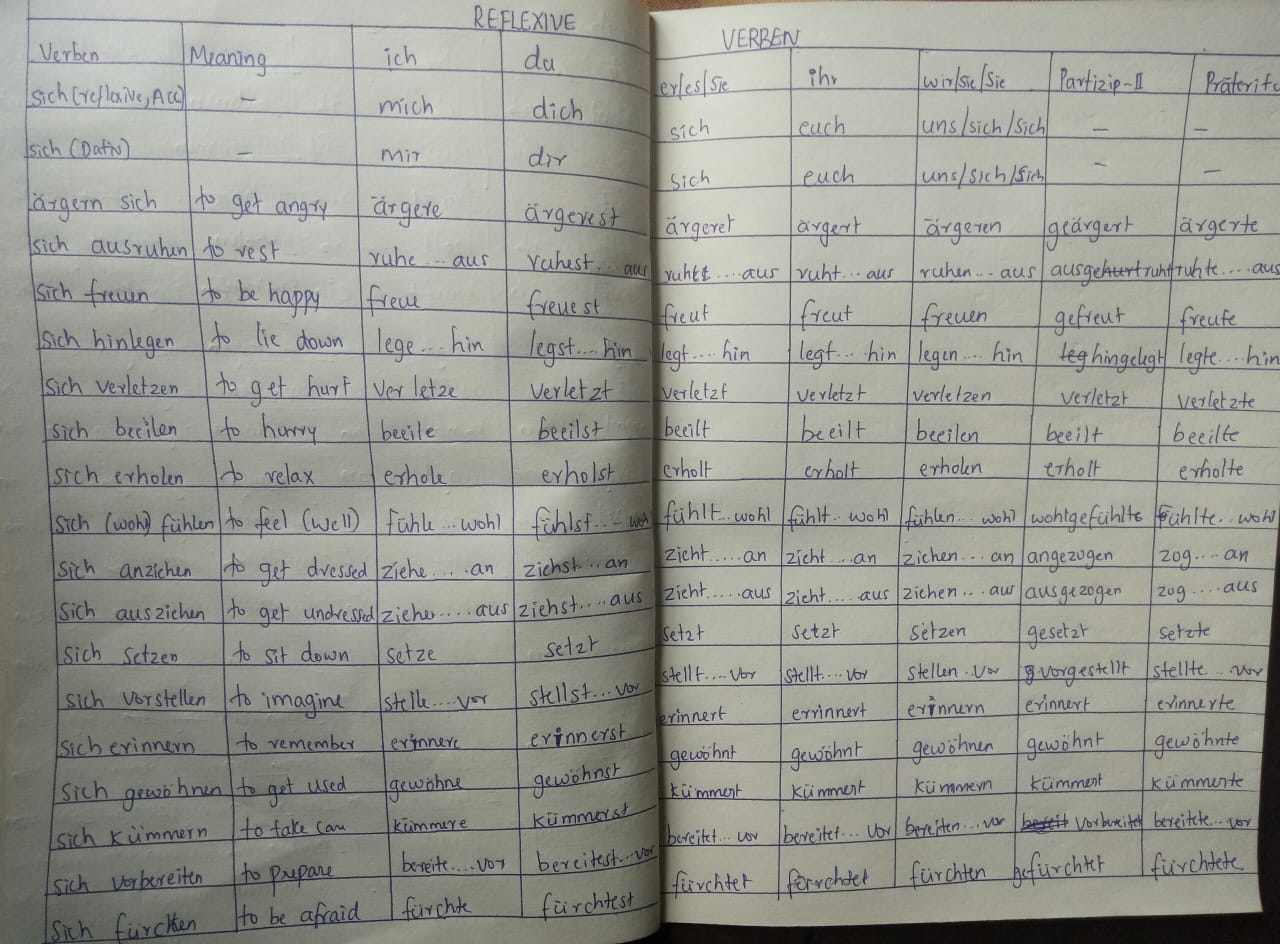 REFLEXIVE VERBEN
Verben Meaning ich du er/es/sie ihr wir/sie/Sie Partizip-II Präterite
sich (reflexive, Acc) — mich dich sich euch uns/sich/sich — —
sich (Dativ) — mir dir sich euch uns/sich/sich — —
ärgern sich to get angry ärgere ärgerest ärgeret ärgert ärgeren geärgert ärgerte
sich ausruhen to rest ruhe...aus ruhest...aus ruht....aus ruht...aus ruhen...aus ausgeruht ruhte....aus
sich freuen to be happy freue freuest freut freut freuen gefreut freute
sich hinlegen to lie down lege...hin legst....hin legt....hin legt...hin legen....hin hingelegt legte...hin
sich verletzen to get hurt verletze verletzt verletzt verletzt verletzen verletzt verletzte
sich beeilen to hurry beeile beeilst beeilt beeilt beeilen beeilt beeilte
sich erholen to relax erhole erholst erholt erholt erholen erholt erholte
sich (wohl) fühlen to feel (well) fühle...wohl fühlst...woh fühlt...wohl fühlt..wohl fühlen...wohl wohlgefühlt fühlte..wohl
sich anziehen to get dressed ziehe....an ziehst...an zieht.....an zieht....an ziehen...an angezogen zog....an
sich ausziehen to get undressed ziehe.....aus ziehst....aus zieht.....aus zieht.....aus ziehen...aus ausgezogen zog....aus
sich setzen to sit down setze setzt setzt setzt setzen gesetzt setzte
sich vorstellen to imagine stelle....vor stellst...vor stellt....vor stellt....vor stellen..vor vorgestellt stellte...vor
sich erinnern to remember erinnere erinnerst erinnert errinnert erinnern erinnert erinnerte
sich gewöhnen to get used gewöhne gewöhnst gewöhnt gewöhnt gewöhnen gewöhnt gewöhnte
sich kümmern to take care kümmere kümmerst kümmert kümmert kümmern kümmert kümmerte
sich vorbereiten to prepare bereite....vor bereitest...vor bereitet...vor bereitet...vor bereiten...vor vorbereitet bereitete...vor
sich fürchten to be afraid fürchte fürchtest fürchtet fürchtet fürchten gefürchtet fürchtete